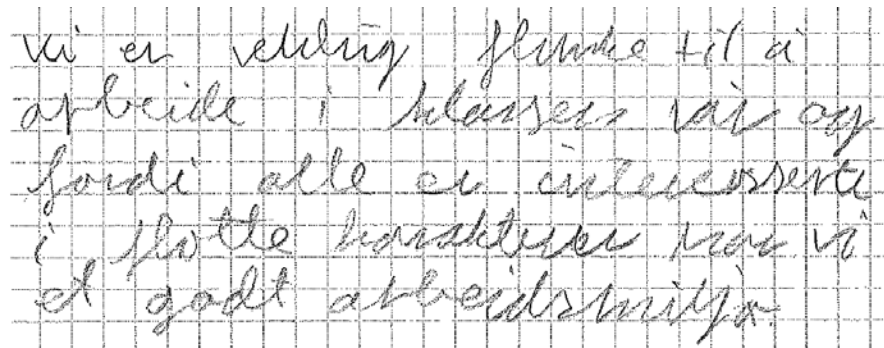 vi er veldig flinke til å
arbeide i klassen vår og
fordi alle er interesserte
i flotte karakterer har vi
et godt arbeidsmiljø.